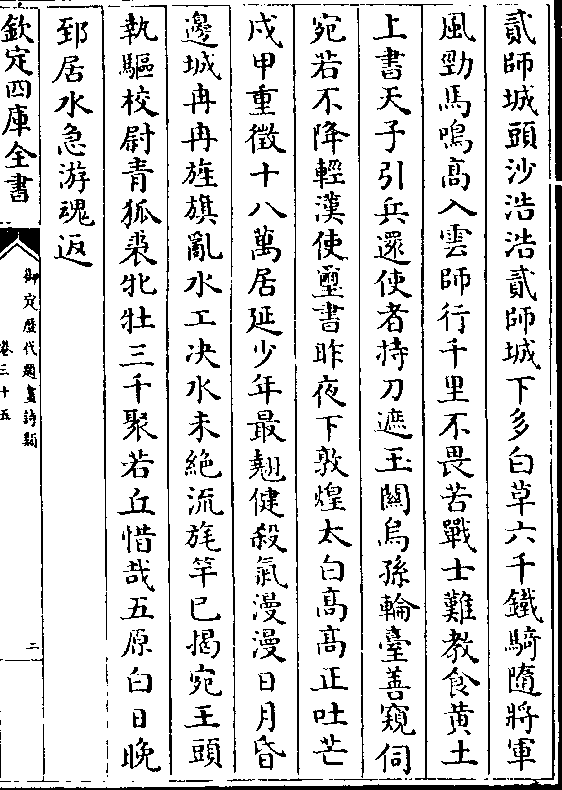 貳師城頭沙浩浩貳師城下多白草六千鐵騎隨將軍
風勁馬鳴高入雲師行千里不畏苦戰士難教食黄土
上書天子引兵還使者持刀遮玉關烏孫輪臺善窺伺
宛若不降輕漢使璽書昨夜下敦煌太白高高正吐芒
戍甲重徵十八萬居延少年最翹健殺氣漫漫日月昏
邊城冉冉旌旗亂水工决水未絶流旄竿已揭宛王頭
執驅校尉青狐裘牝牡三千聚若丘惜哉五原白日晚
郅居水急游魂返
欽定四庫全書
御定歴代題畫詩類
卷三十五
二